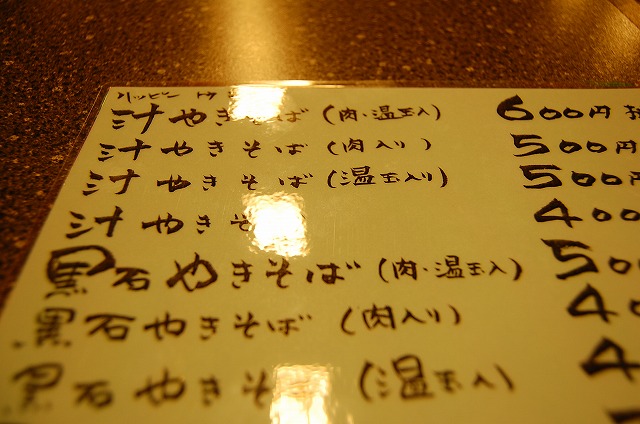 ハッピー
汁やきそば(肉・温玉入) 600円
汁やきそば(肉入り) 500円
汁やきそば(温玉入り) 500円
汁やきそば 400
黒石やきそば(肉・温玉入) 500
黒石やきそば(肉入り) 4
黒石やきそば(温玉入) 4